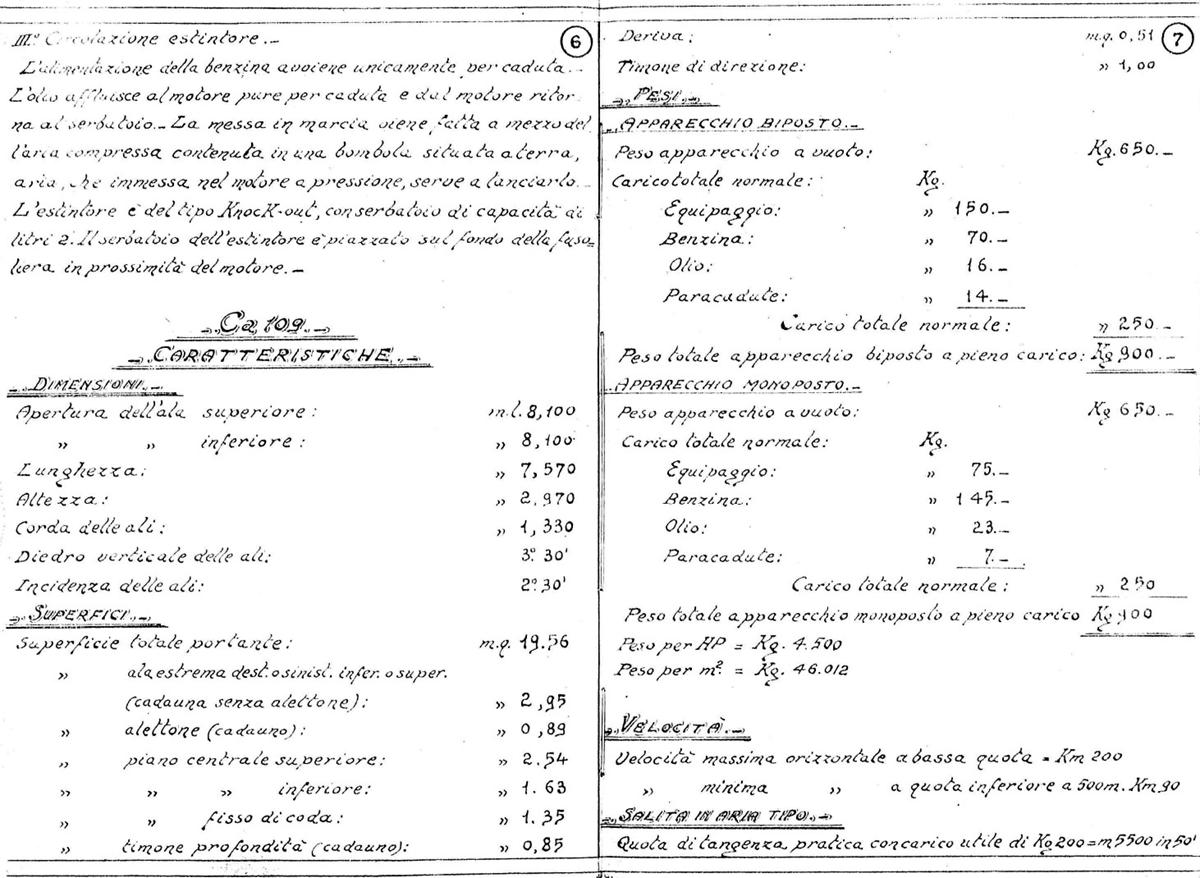 III.º Circolazione estintore.–
6
L'alimentazione della benzina avviene unicamente per caduta.–
L'olio affluisce al motore pure per caduta e dal motore ritor
na al serbatoio.– La messa in marcia viene fatta a mezzo del
l'aria compressa contenuta in una bombola situata a terra,
aria, che immessa nel motore a pressione, serve a lanciarlo.–
L'estintore è del tipo Knock-out, con serbatoio di capacità di
litri 2. Il serbatoio dell'estintore è piazzato sul fondo della fuso=
liera in prossimità del motore.–
Ca 109.–
CARATTERISTICHE.–
DIMENSIONI.–
Apertura dell'ala superiore: m.l. 8,100
" " inferiore: " 8,100
Lunghezza: " 7,570
Altezza: " 2.970
Corda delle ali: " 1,330
Diedro verticale delle ali: 3º 30'
Incidenza delle ali: 2º.30'
SUPERFICI.–
Superficie totale portante: m.q. 19.56
" ala estrema dest. o sinist. infer. o super.
(cadauna senza alettone): " 2,95
" alettone (cadauno): " 0,89
" piano centrale superiore: " 2.54
" " " inferiore: " 1.63
" " fisso di coda: " 1.35
" timone profondità (cadauno): " 0,85
Deriva: m.q. 0,51
7
Timone di direzione: " 1,00
PESI.–
APPARECCHIO BIPOSTO.–
Peso apparecchio a vuoto: Kg. 650.–
Carico totale normale: Kg.
Equipaggio: " 150.–
Benzina: " 70.–
Olio: " 16.–
Paracadute: " 14.–
Carico totale normale: " 250.–
Peso totale apparecchio biposto a pieno carico: Kg 900.–
APPARECCHIO MONOPOSTO.–
Peso apparecchio a vuoto: Kg 650.–
Carico totale normale: Kg.
Equipaggio: " 75.–
Benzina: " 145.–
Olio: " 23.–
Paracadute: " 7.–
Carico totale normale: " 250
Peso totale apparecchio monoposto a pieno carico Kg 900
Peso per HP = Kg. 4.500
Peso per m². = Kg. 46.012
VELOCITÀ.–
Velocità massima orizzontale a bassa quota = Km 200
" minima " a quota inferiore a 500m. Km 90
SALITA IN ARIA TIPO.–
Quota di tangenza pratica con carico utile di Kg 200 = m 5500 in 50'